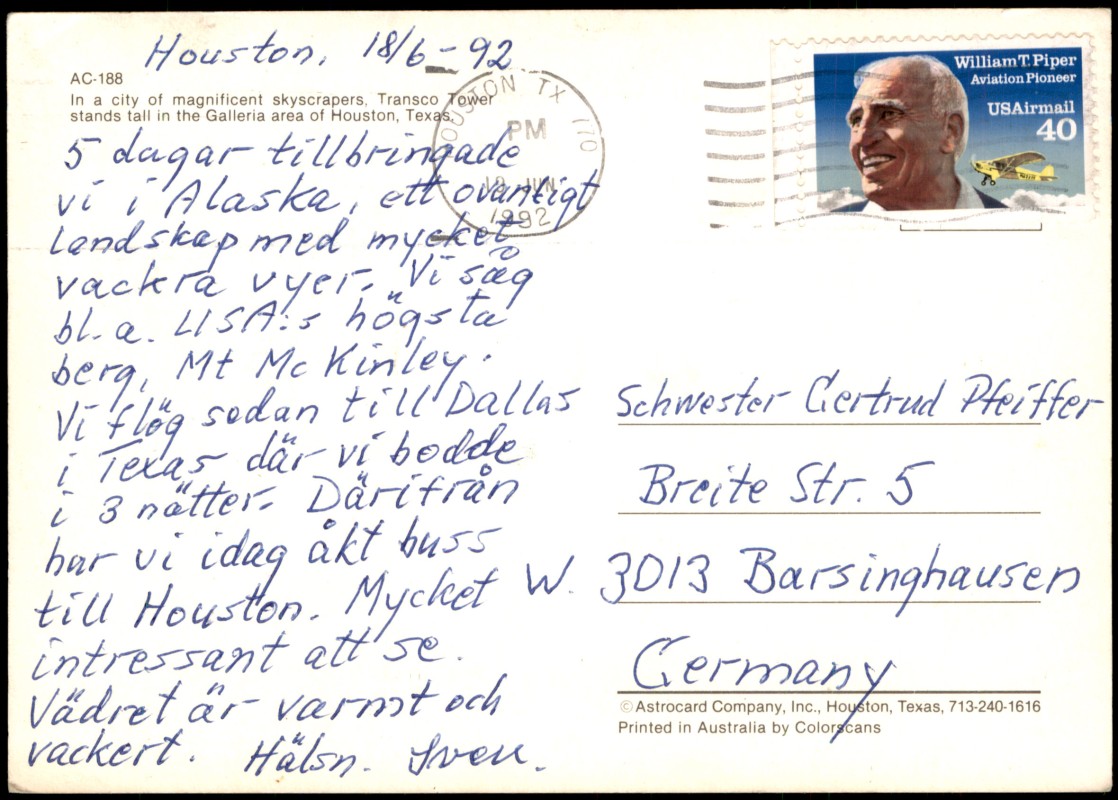 Houston, 18/6-92
AC-188
In a city of magnificent skyscrapers, Transco Tower
stands tall in the Galleria area of Houston, Texas.
5 dagar tillbringade
vi i Alaska, ett ovanligt
landskap med mycket
vackra vyer. Vi såg
bl.a. USA:s högsta
berg, Mt McKinley.
Vi flög sedan till Dallas
i Texas där vi bodde
i 3 nätter. Därifrån
har vi idag åkt buss
till Houston. Mycket
intressant att se.
Vädret är varmt och
vackert. Hälsn. Sven.
HOUSTON TX 770
PM
JUN
1992
William T. Piper
Aviation Pioneer
USAirmail
40
Schwester Gertrud Pfeiffer
Breite Str. 5
W. 3013 Barsinghausen
Germany
© Astrocard Company, Inc., Houston, Texas, 713-240-1616
Printed in Australia by Colorscans